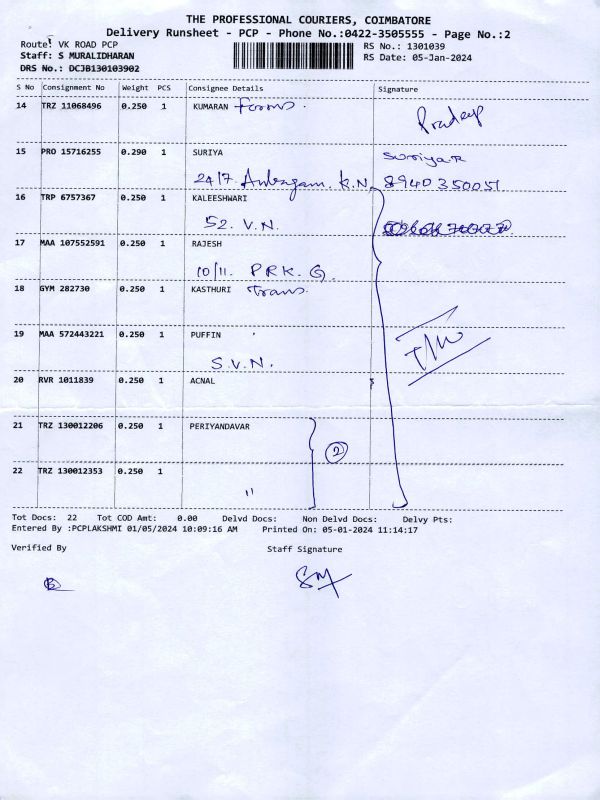 THE PROFESSIONAL COURIERS, COIMBATORE
Delivery Runsheet - PCP - Phone No.:0422-3505555 - Page No.:2
Route: VK ROAD PCP
RS No.: 1301039
Staff: S MURALIDHARAN
RS Date: 05-Jan-2024
DRS No.: DCJB130103902
S No Consignment No Weight PCS Consignee Details Signature
14 TRZ 11068496 0.250 1 KUMARAN Forms.
Pradeep
15 PRO 15716255 0.290 1 SURIYA Suriya.R
24/7 K.N. 8940350051
16 TRP 6757367 0.250 1 KALEESHWARI
52. V.N.
17 MAA 107552591 0.250 1 RAJESH
10/11. P.R.K. G.
18 GYM 282730 0.250 1 KASTHURI Trans.
19 MAA 572443221 0.250 1 PUFFIN
S.V.N.
20 RVR 1011839 0.250 1 ACNAL
21 TRZ 130012206 0.250 1 PERIYANDAVAR
2
22 TRZ 130012353 0.250 1
"
Tot Docs: 22 Tot COD Amt: 0.00 Delvd Docs: Non Delvd Docs: Delvy Pts:
Entered By :PCPLAKSHMI 01/05/2024 10:09:16 AM Printed On: 05-01-2024 11:14:17
Verified By Staff Signature